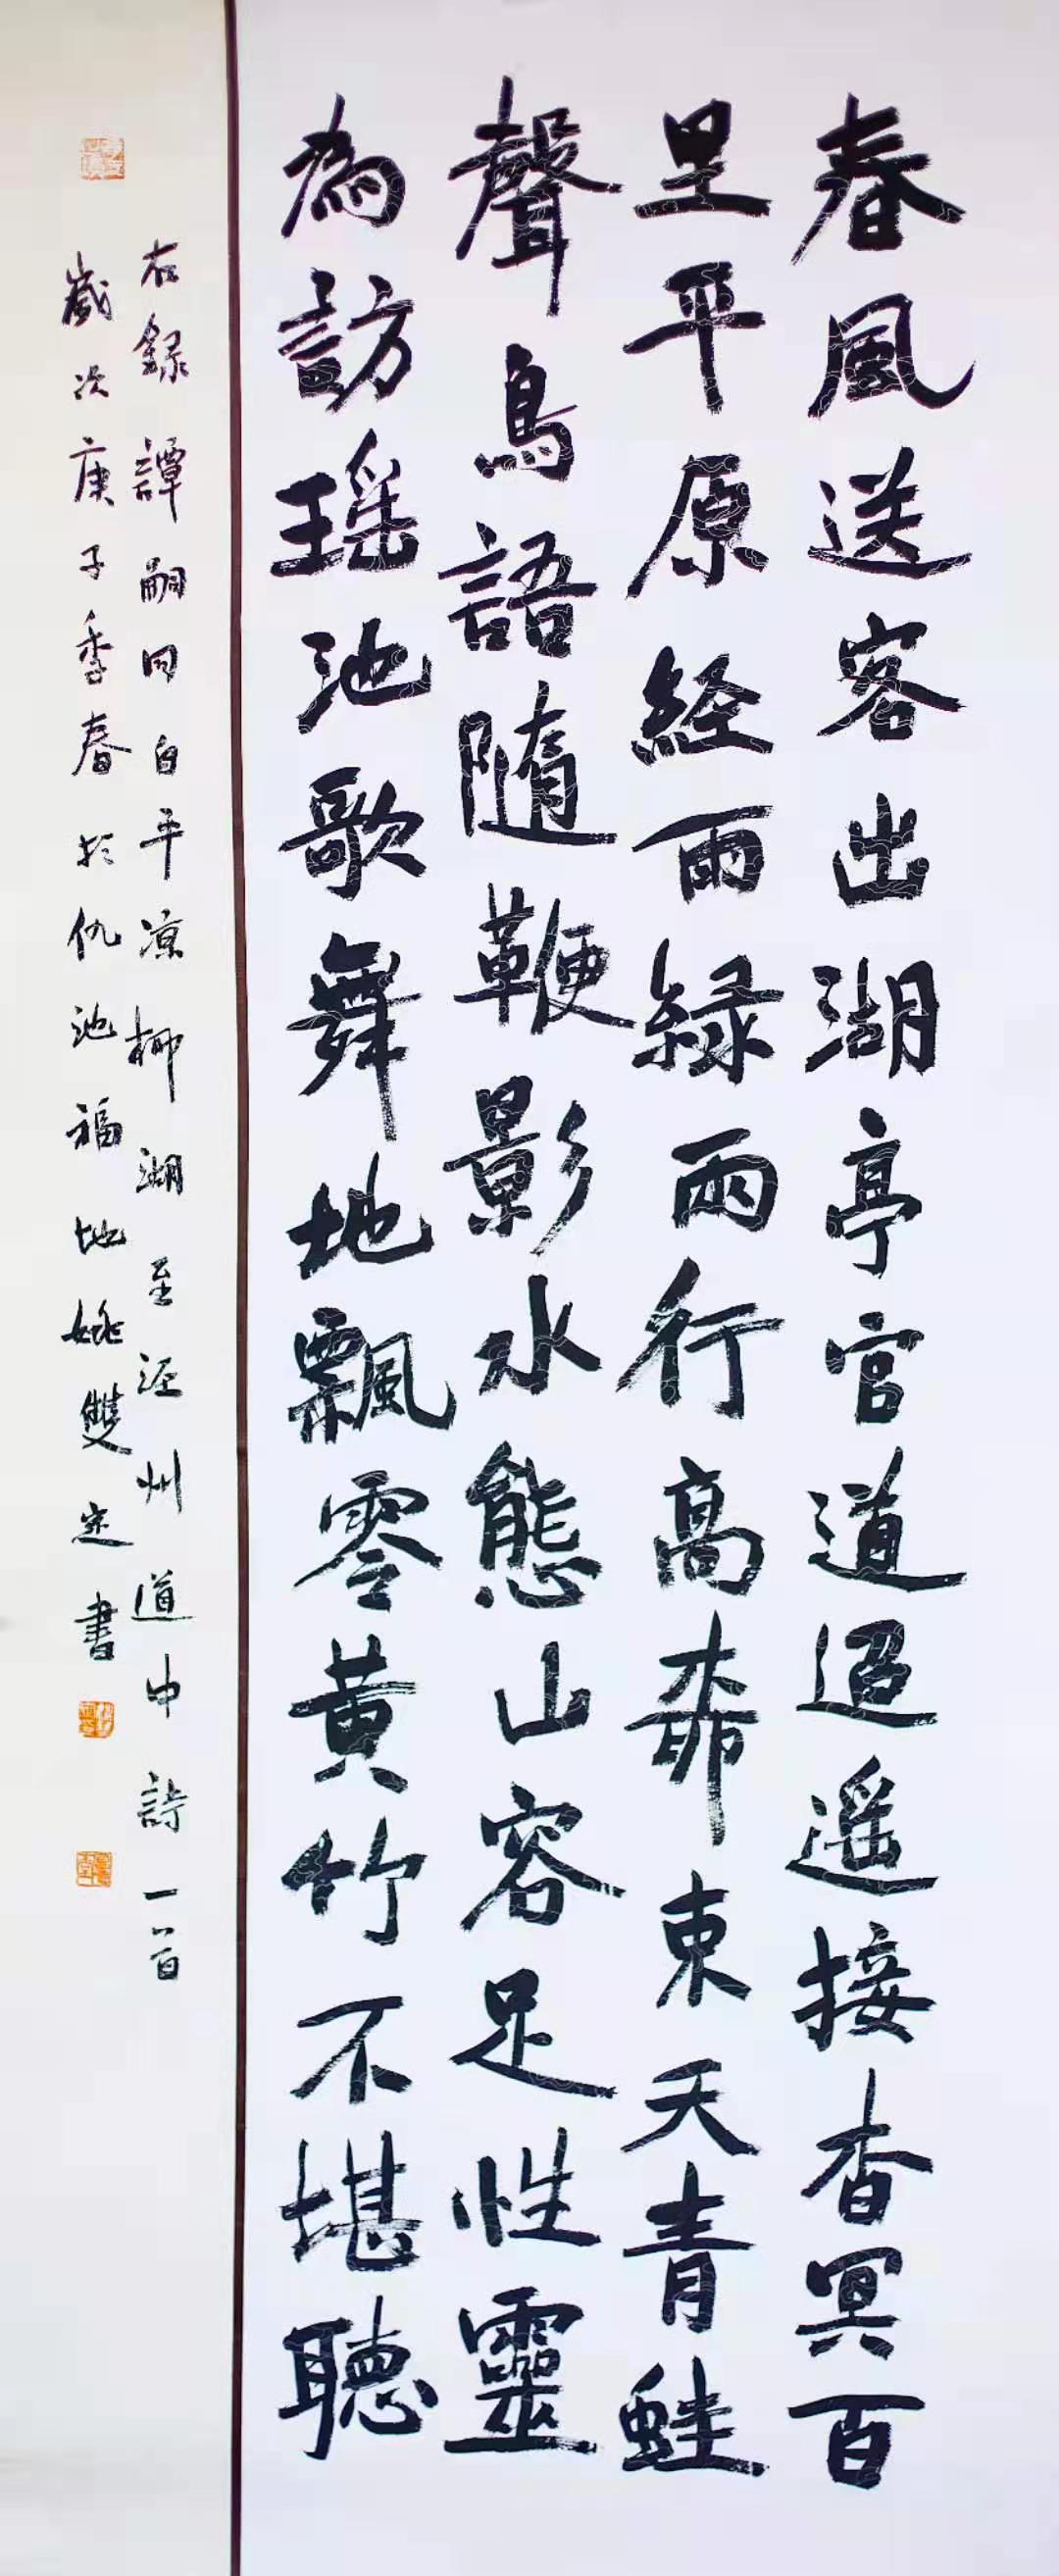 春風送客出湖亭官道迢遥接杳冥百
里平原経雨緑兩行高柳束天青蛙
聲鳥語隨鞭影水態山容足性靈
為訪瑶池歌舞地飄零黄竹不堪聽
右録譚嗣同自平凉柳湖至涇州道中詩一首
歲次庚子季春於仇池福地姚雙定書